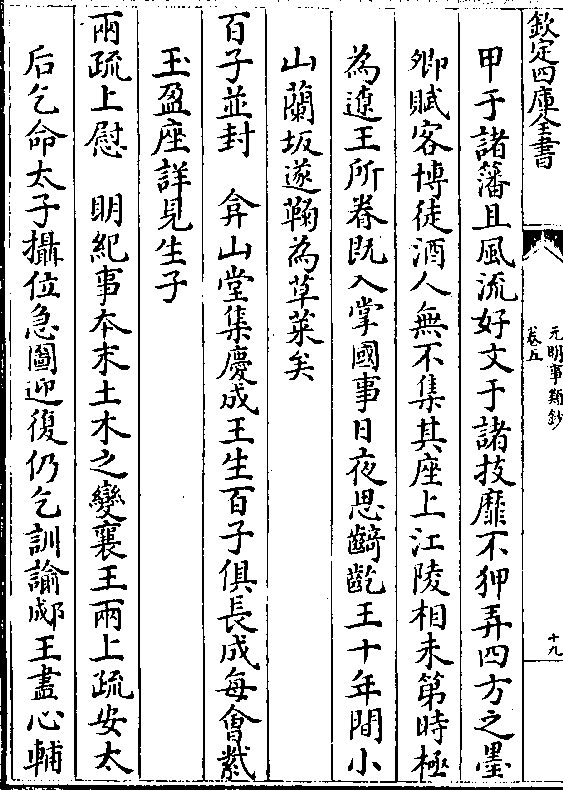 欽定四庫全書
元明事類鈔
卷五
十九
甲于諸藩且風流好文于諸技靡不狎弄四方之墨
卿賦客博徒酒人無不集其座上江陵相未第時極
為遼王所眷既入掌國事日夜思齮齕王十年間小
山蘭坂遂鞠為草萊矣
百子並封　弇山堂集慶成王生百子俱長成每會紫
玉盈座詳見生子
兩疏上慰　明紀事本末土木之變襄王兩上疏安太
后乞命太子攝位急圖迎復仍乞訓諭郕王盡心輔